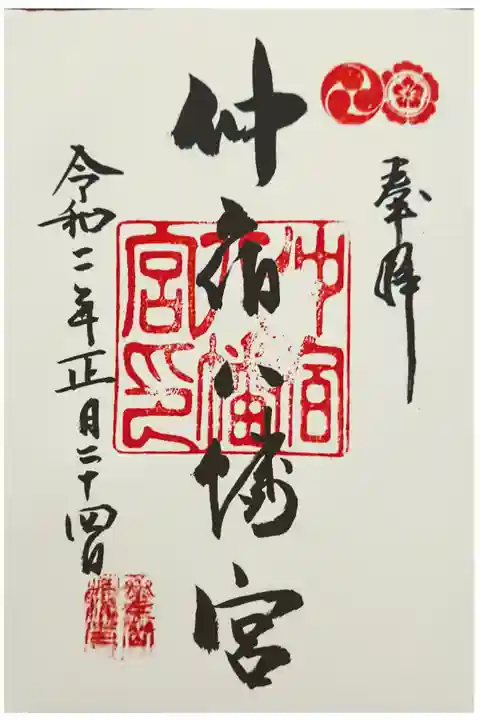 奉拝
仲宿八幡宮
仲宿八幡宮印
令和二年正月二十四日